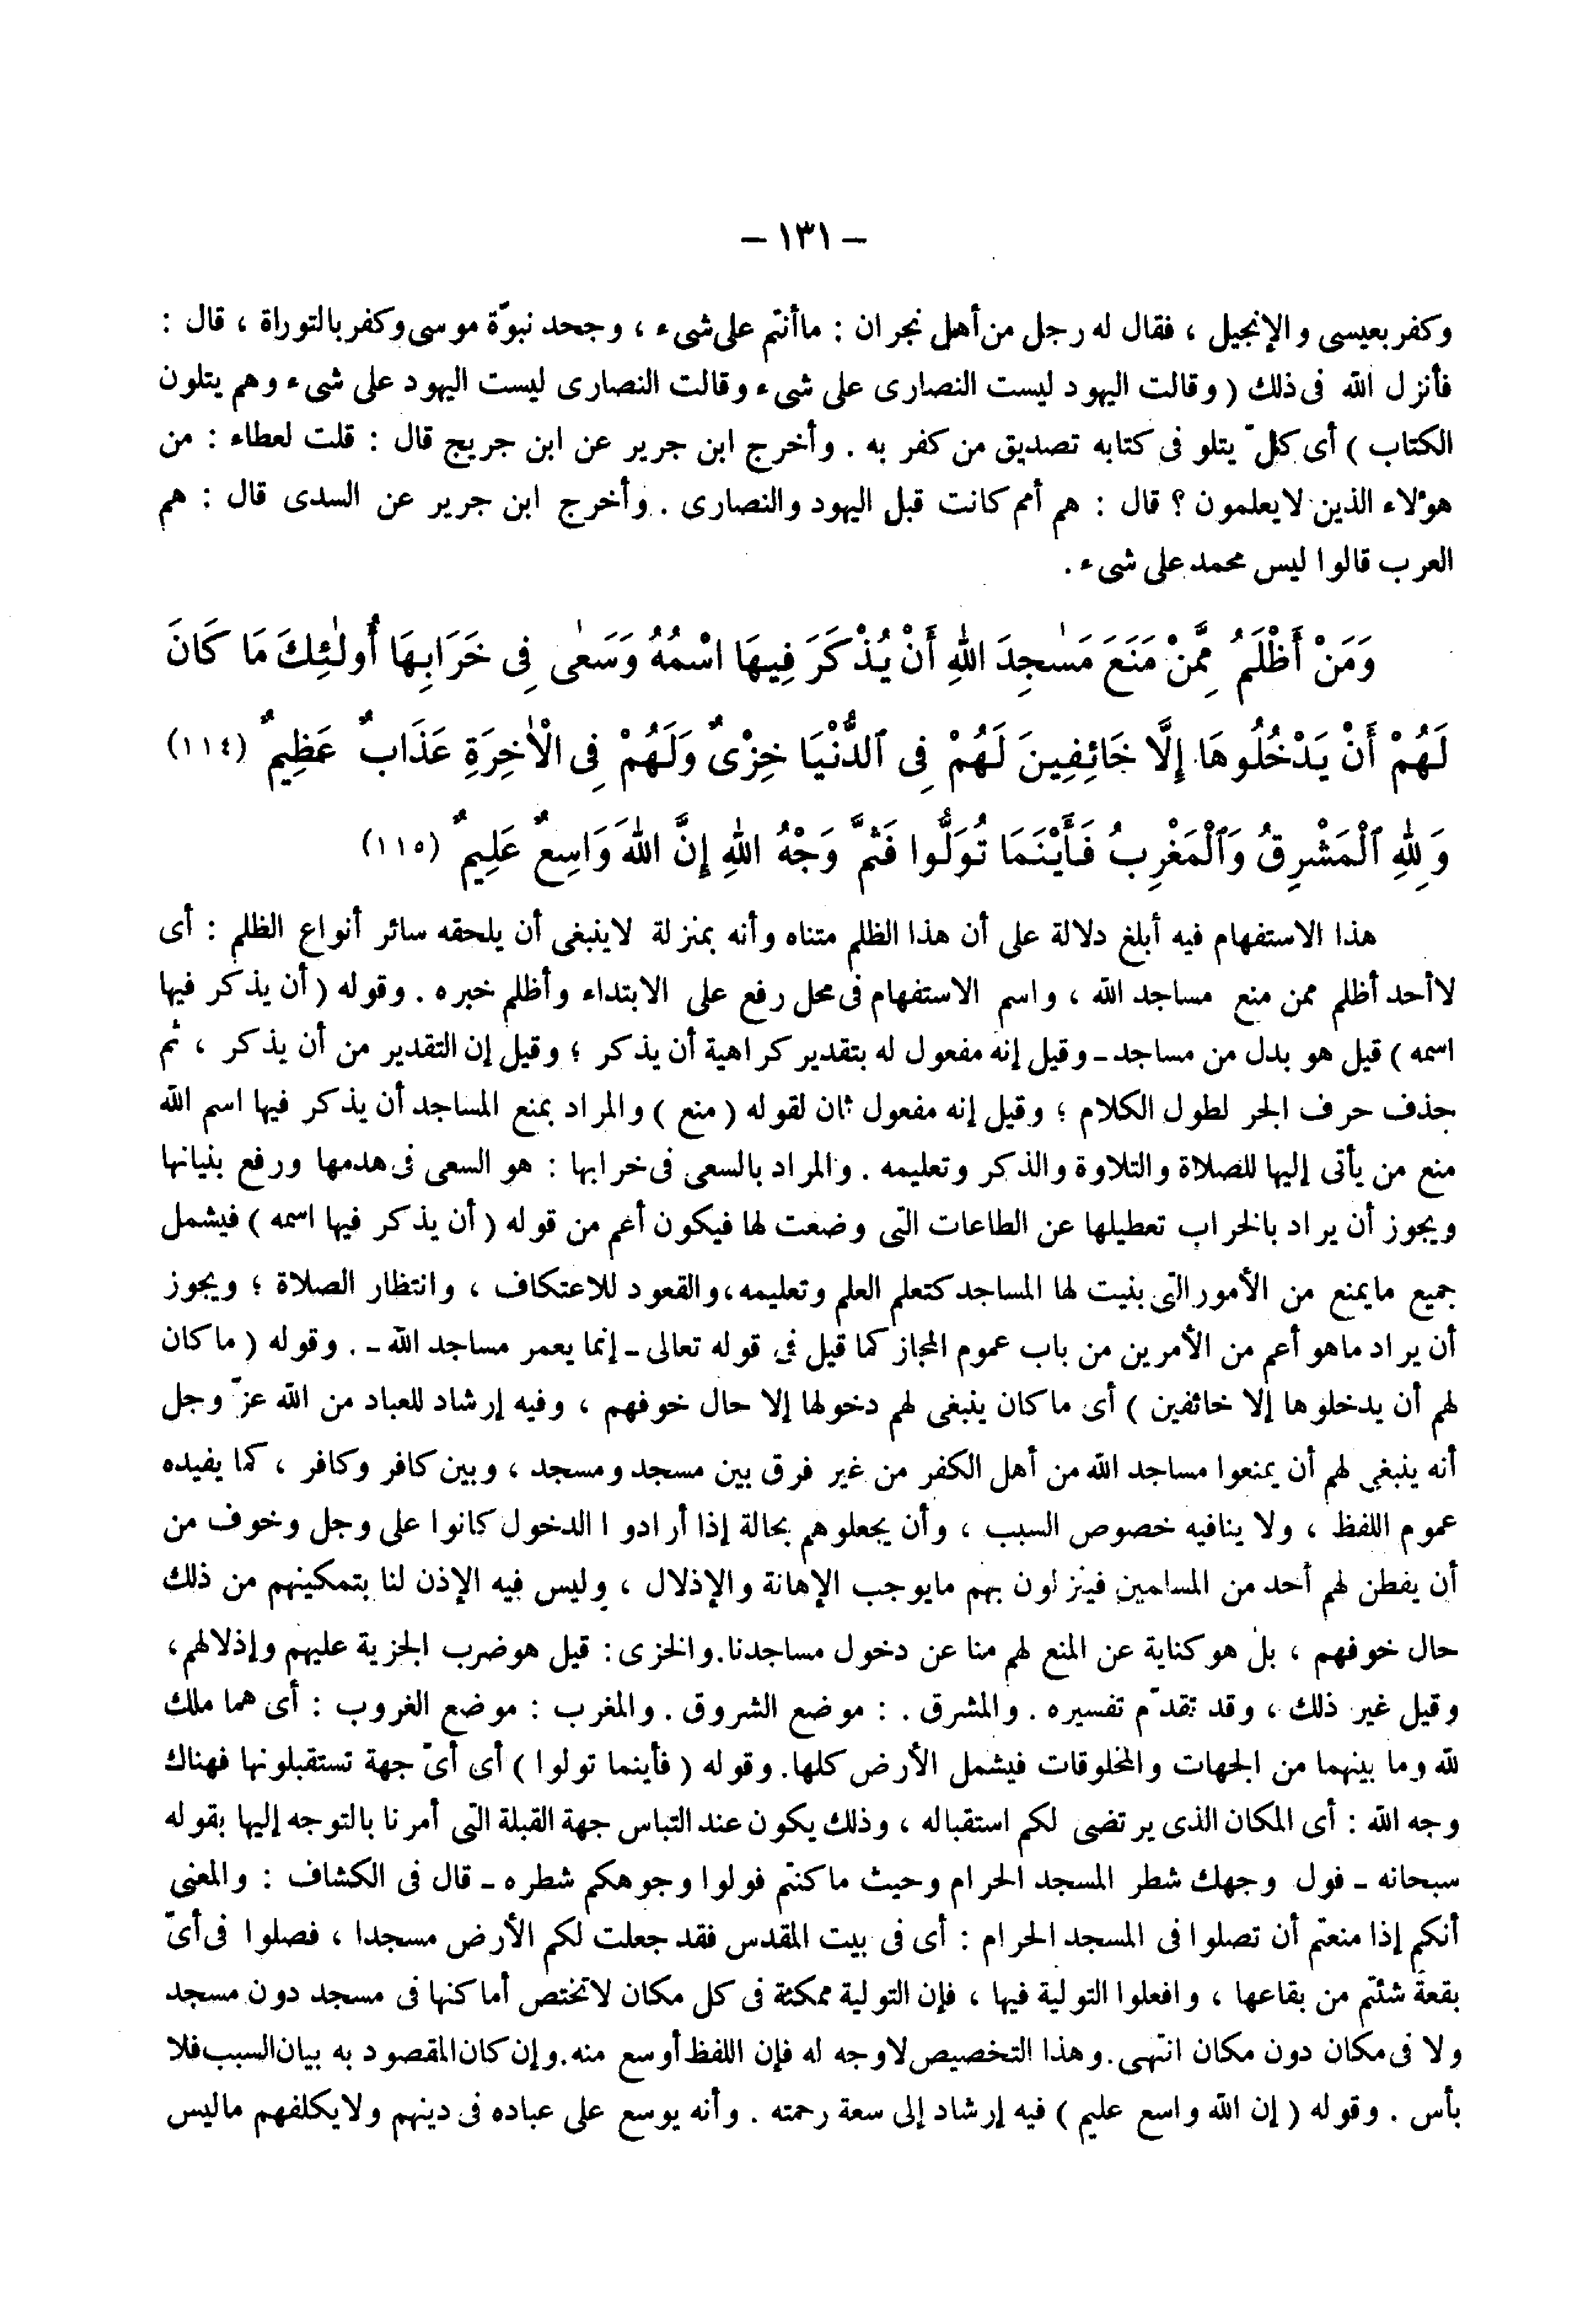 – ١٣١ –
وكفر بعيسى والإنجيل ، فقال له رجل من أهل نجران : ما أنتم على شىء ، وجحد نبوّة موسى وكفر بالتوراة ، قال :
فأنزل الله فى ذلك ( وقالت اليهود ليست النصارى على شىء وقالت النصارى ليست اليهود على شىء وهم يتلون
الكتاب ) أى كلّ يتلو فى كتابه تصديق من كفر به . وأخرج ابن جرير عن ابن جريج قال : قلت لعطاء : من
هؤلاء الذين لا يعلمون ؟ قال : هم أمم كانت قبل اليهود والنصارى . وأخرج ابن جرير عن السدى قال : هم
العرب قالوا ليس محمد على شىء .
وَمَنْ أَظْلَمُ مِمَّنْ مَنَعَ مَسٰجِدَ اللهِ أَنْ يُذْكَرَ فِيهَا اسْمُهُ وَسَعٰى فِى خَرَابِهَا أُولٰئِكَ مَا كَانَ
لَهُمْ أَنْ يَدْخُلُوهَا إِلَّا خَائِفِينَ لَهُمْ فِى ٱلدُّنْيَا خِزْىٌ وَلَهُمْ فِى الْأٰخِرَةِ عَذَابٌ عَظِيمٌ (١١٤)
وَلِلهِ ٱلْمَشْرِقُ وَٱلْمَغْرِبُ فَأَيْنَمَا تُوَلُّوا فَثَمَّ وَجْهُ اللهِ إِنَّ اللهَ وَاسِعٌ عَلِيمٌ (١١٥)
هذا الاستفهام فيه أبلغ دلالة على أن هذا الظلم متناه وأنه بمنزلة لاينبغى أن يلحقه سائر أنواع الظلم : أى
لا أحد أظلم ممن منع مساجد الله ، واسم الاستفهام فى محل رفع على الابتداء وأظلم خبره . وقوله ( أن يذكر فيها
اسمه ) قيل هو بدل من مساجد ـ وقيل إنه مفعول له بتقدير كراهية أن يذكر ؛ وقيل إن التقدير من أن يذكر ، ثم
حذف حرف الجر لطول الكلام ؛ وقيل إنه مفعول ثان لقوله ( منع ) والمراد بمنع المساجد أن يذكر فيها اسم الله
منع من يأتى إليها للصلاة والتلاوة والذكر وتعليمه . والمراد بالسعى فى خرابها : هو السعى فى هدمها ورفع بنيانها
ويجوز أن يراد بالخراب تعطيلها عن الطاعات التى وضعت لها فيكون أعم من قوله ( أن يذكر فيها اسمه ) فيشمل
جميع مايمنع من الأمور التى بنيت لها المساجد كتعلم العلم وتعليمه ، والقعود للاعتكاف ، وانتظار الصلاة ؛ ويجوز
أن يراد ماهو أعم من الأمرين من باب عموم المجاز كما قيل فى قوله تعالى ـ إنما يعمر مساجد الله ـ . وقوله ( ما كان
لهم أن يدخلوها إلا خائفين ) أى ما كان ينبغى لهم دخولها إلا حال خوفهم ، وفيه إرشاد للعباد من الله عزّ وجل
أنه ينبغى لهم أن يمنعوا مساجد الله من أهل الكفر من غير فرق بين مسجد ومسجد ، وبين كافر وكافر ، كما يفيده
عموم اللفظ ، ولا ينافيه خصوص السبب ، وأن يجعلوهم بحالة إذا أرادوا الدخول كانوا على وجل وخوف من
أن يفطن لهم أحد من المسلمين فينزلون بهم مايوجب الإهانة والإذلال ، وليس فيه الإذن لنا بتمكينهم من ذلك
حال خوفهم ، بل هو كناية عن المنع لهم منا عن دخول مساجدنا . والخزى : قيل هو ضرب الجزية عليهم وإذلالهم ،
وقيل غير ذلك ، وقد تقدّم تفسيره . والمشرق . : موضع الشروق . والمغرب : موضع الغروب : أى هما ملك
لله وما بينهما من الجهات والمخلوقات فيشمل الأرض كلها . وقوله ( فأينما تولوا ) أى أىّ جهة تستقبلونها فهناك
وجه الله : أى المكان الذى يرتضى لكم استقباله ، وذلك يكون عند التباس جهة القبلة التى أمرنا بالتوجه إليها بقوله
سبحانه ـ فول وجهك شطر المسجد الحرام وحيث ما كنتم فولوا وجوهكم شطره ـ قال فى الكشاف : والمعنى
أنكم إذا منعتم أن تصلوا فى المسجد الحرام : أى فى بيت المقدس فقد جعلت لكم الأرض مسجدا ، فصلوا فى أىّ
بقعة شئتم من بقاعها ، وافعلوا التولية فيها ، فإن التولية ممكنة فى كل مكان لاتختص أماكنها فى مسجد دون مسجد
ولا فى مكان دون مكان انتهى . وهذا التخصيص لاوجه له فإن اللفظ أوسع منه . وإن كان المقصود به بيان السبب فلا
بأس . وقوله ( إن الله واسع عليم ) فيه إرشاد إلى سعة رحمته . وأنه يوسع على عباده فى دينهم ولا يكلفهم ماليس